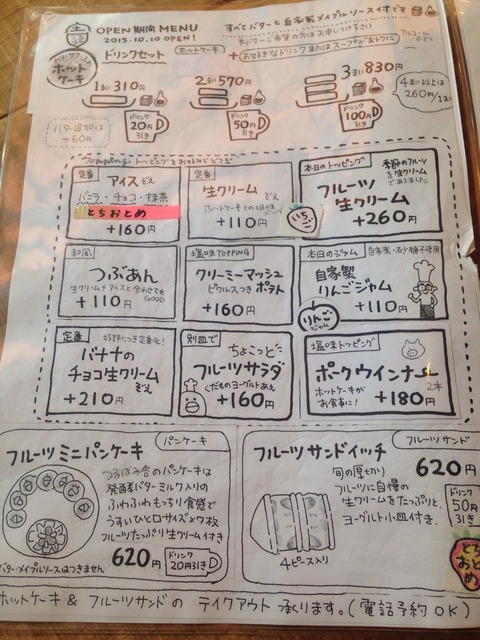 OPEN期間 MENU
2015.10.10 OPEN!
すべてバターと自家製メイプルソース付です
ホットケーキ
ドリンクセット
ホットケーキ
+
お好きなドリンクまたはスープがおトクに
1まい 310円
2まい 570円
3まい 830円
4まい以上は
260円/1まい
バター追加は
+60円
ドリンク
20円
引き
ドリンク
50円
引き
ドリンク
100円
引き
定番
アイス ぞえ
バニラ・チョコ・抹茶
とちおとめ
+160円
定番
生クリーム ぞえ
+110円
本日のトッピング
季節のフルーツ
を生クリームで
フルーツ
生クリーム
いちご
+260円
和風
つぶあん
生クリームやアイスと合わせても
GOOD
+110円
塩味TOPPING
クリーミーマッシュ
ピクルスつき ポテト
+160円
本日のジャム
自家製
りんごジャム
りんご
ジャム
+110円
定番
バナナの
チョコ生クリーム
ぞえ
+210円
別皿で
ちょこっと
フルーツサラダ
くだものヨーグルトあえ
+160円
塩味トッピング
ポークウインナー
2本
ホットケーキが
お食事に!
+180円
パンケーキ
フルーツミニパンケーキ
つるばみ舎のパンケーキは
発酵バターミルク入りの
ふわふわもっちり食感で
うすいひと口サイズ×7枚
フルーツたっぷり生クリーム付き
バター・メイプルソースはつきません
620円
ドリンク
20円引き
フルーツサンド
フルーツサンドイッチ
620円
旬の厚切り
フルーツに自慢の
生クリームをたっぷりと、
ヨーグルト小皿付き.
4ピース入り
ドリンク
50円
引き
とちおとめ
ホットケーキ & フルーツサンドの テイクアウト 承ります。(電話予約OK)